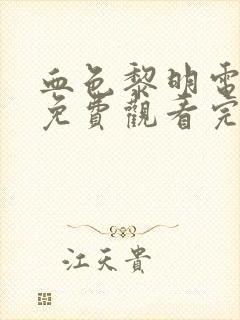 血色黎明電
免費觀看完
江天貴